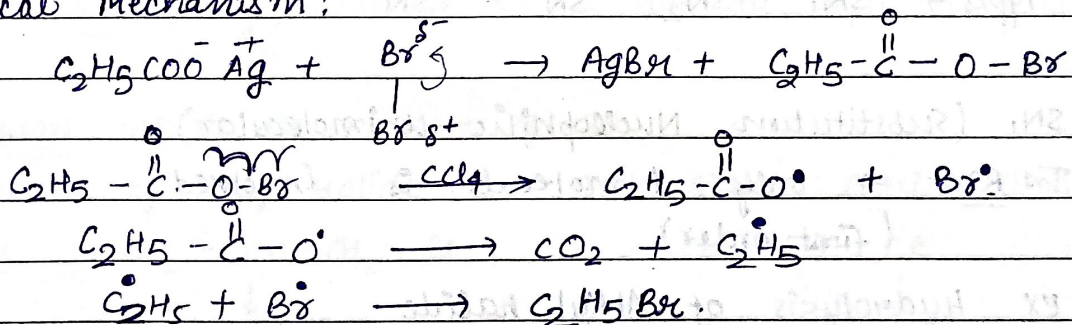 cal Mechanism:
C₂H₅COO⁻ Ag⁺ + Br^δ⁻ – Br^δ+ → AgBr + C₂H₅-C(=O)-O-Br
C₂H₅-C(=O)-O-Br —CCl₄→ C₂H₅-C(=O)-O• + Br•
C₂H₅-C(=O)-O• → CO₂ + Ċ₂H₅
Ċ₂H₅ + Br• → C₂H₅Br.